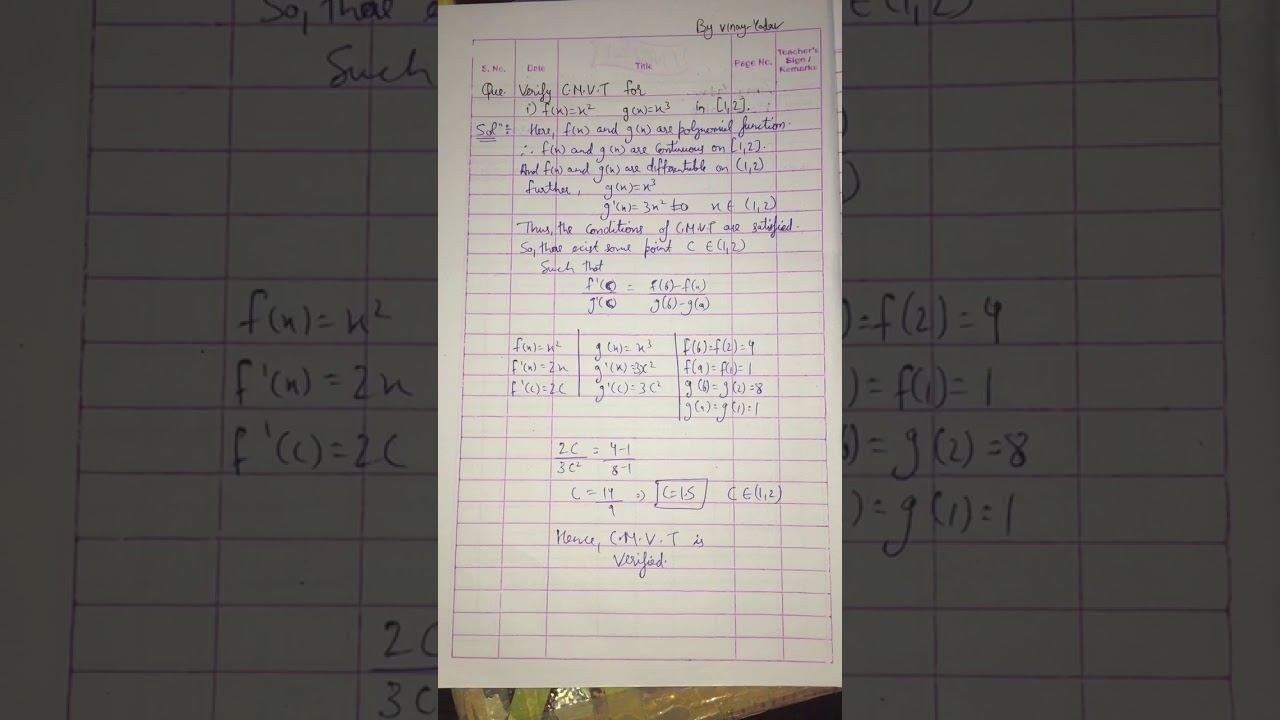 By Vinay Yadav
S. No. Date Title Page No. Teacher's Sign / Remarks
Que. Verify C.M.V.T for
i) f(x)=x² g(x)=x³ in [1,2].
Solⁿ:- Here, f(x) and g(x) are polynomial function.
∴ f(x) and g(x) are continuous on [1,2].
And f(x) and g(x) are differentiable on (1,2)
further, g(x)=x³
g'(x)=3x²≠0 x ∈ (1,2)
Thus, the conditions of C.M.V.T are satisfied.
So, there exist some point C ∈ (1,2)
Such that
f'(c) = f(b)-f(a)
g'(c) g(b)-g(a)
f(x)=x² g(x)=x³ f(b)=f(2)=4
f'(x)=2x g'(x)=3x² f(a)=f(1)=1
f'(c)=2C g'(c)=3C² g(b)=g(2)=8
g(a)=g(1)=1
2C = 4-1
3C² 8-1
C = 14 ⇒ C=1.5 C ∈ (1,2)
9
Hence, C.M.V.T is
Verified.
So, there
∈ (1,2)
Such
f(x)=x²
f'(x)=2x
f'(c)=2C
)=f(2)=4
)=f(1)=1
)=g(2)=8
)=g(1)=1
2C
3C